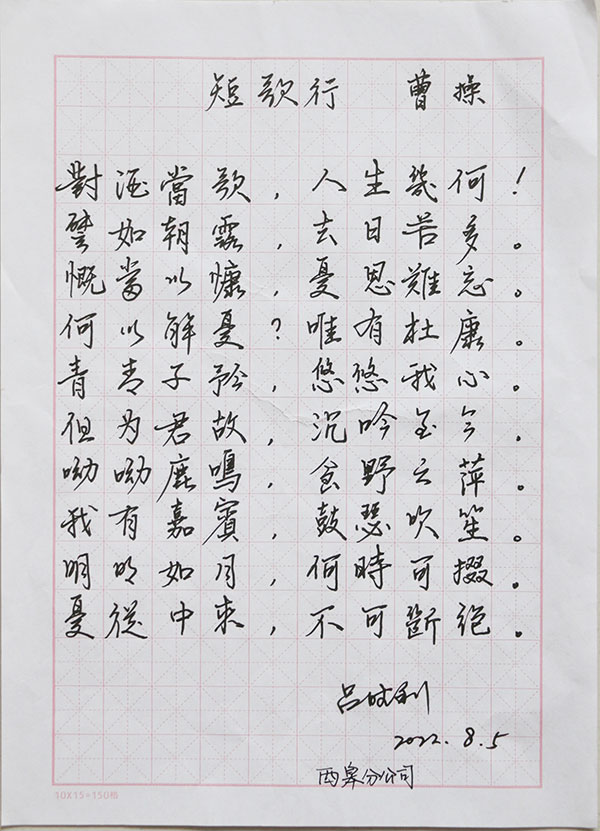 短歌行 曹操
對酒當歌，人生幾何！
譬如朝露，去日苦多。
慨當以慷，憂思難忘。
何以解憂？唯有杜康。
青青子衿，悠悠我心。
但为君故，沉吟至今。
呦呦鹿鳴，食野之萍。
我有嘉賓，鼓瑟吹笙。
明明如月，何時可掇。
憂從中來，不可斷絕。
吕時利
2022.8.5
西皋分公司
10X15=150格